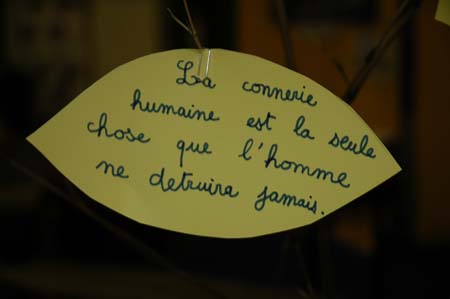 La connerie
humaine est la seule
chose que l'homme
ne detruira jamais.